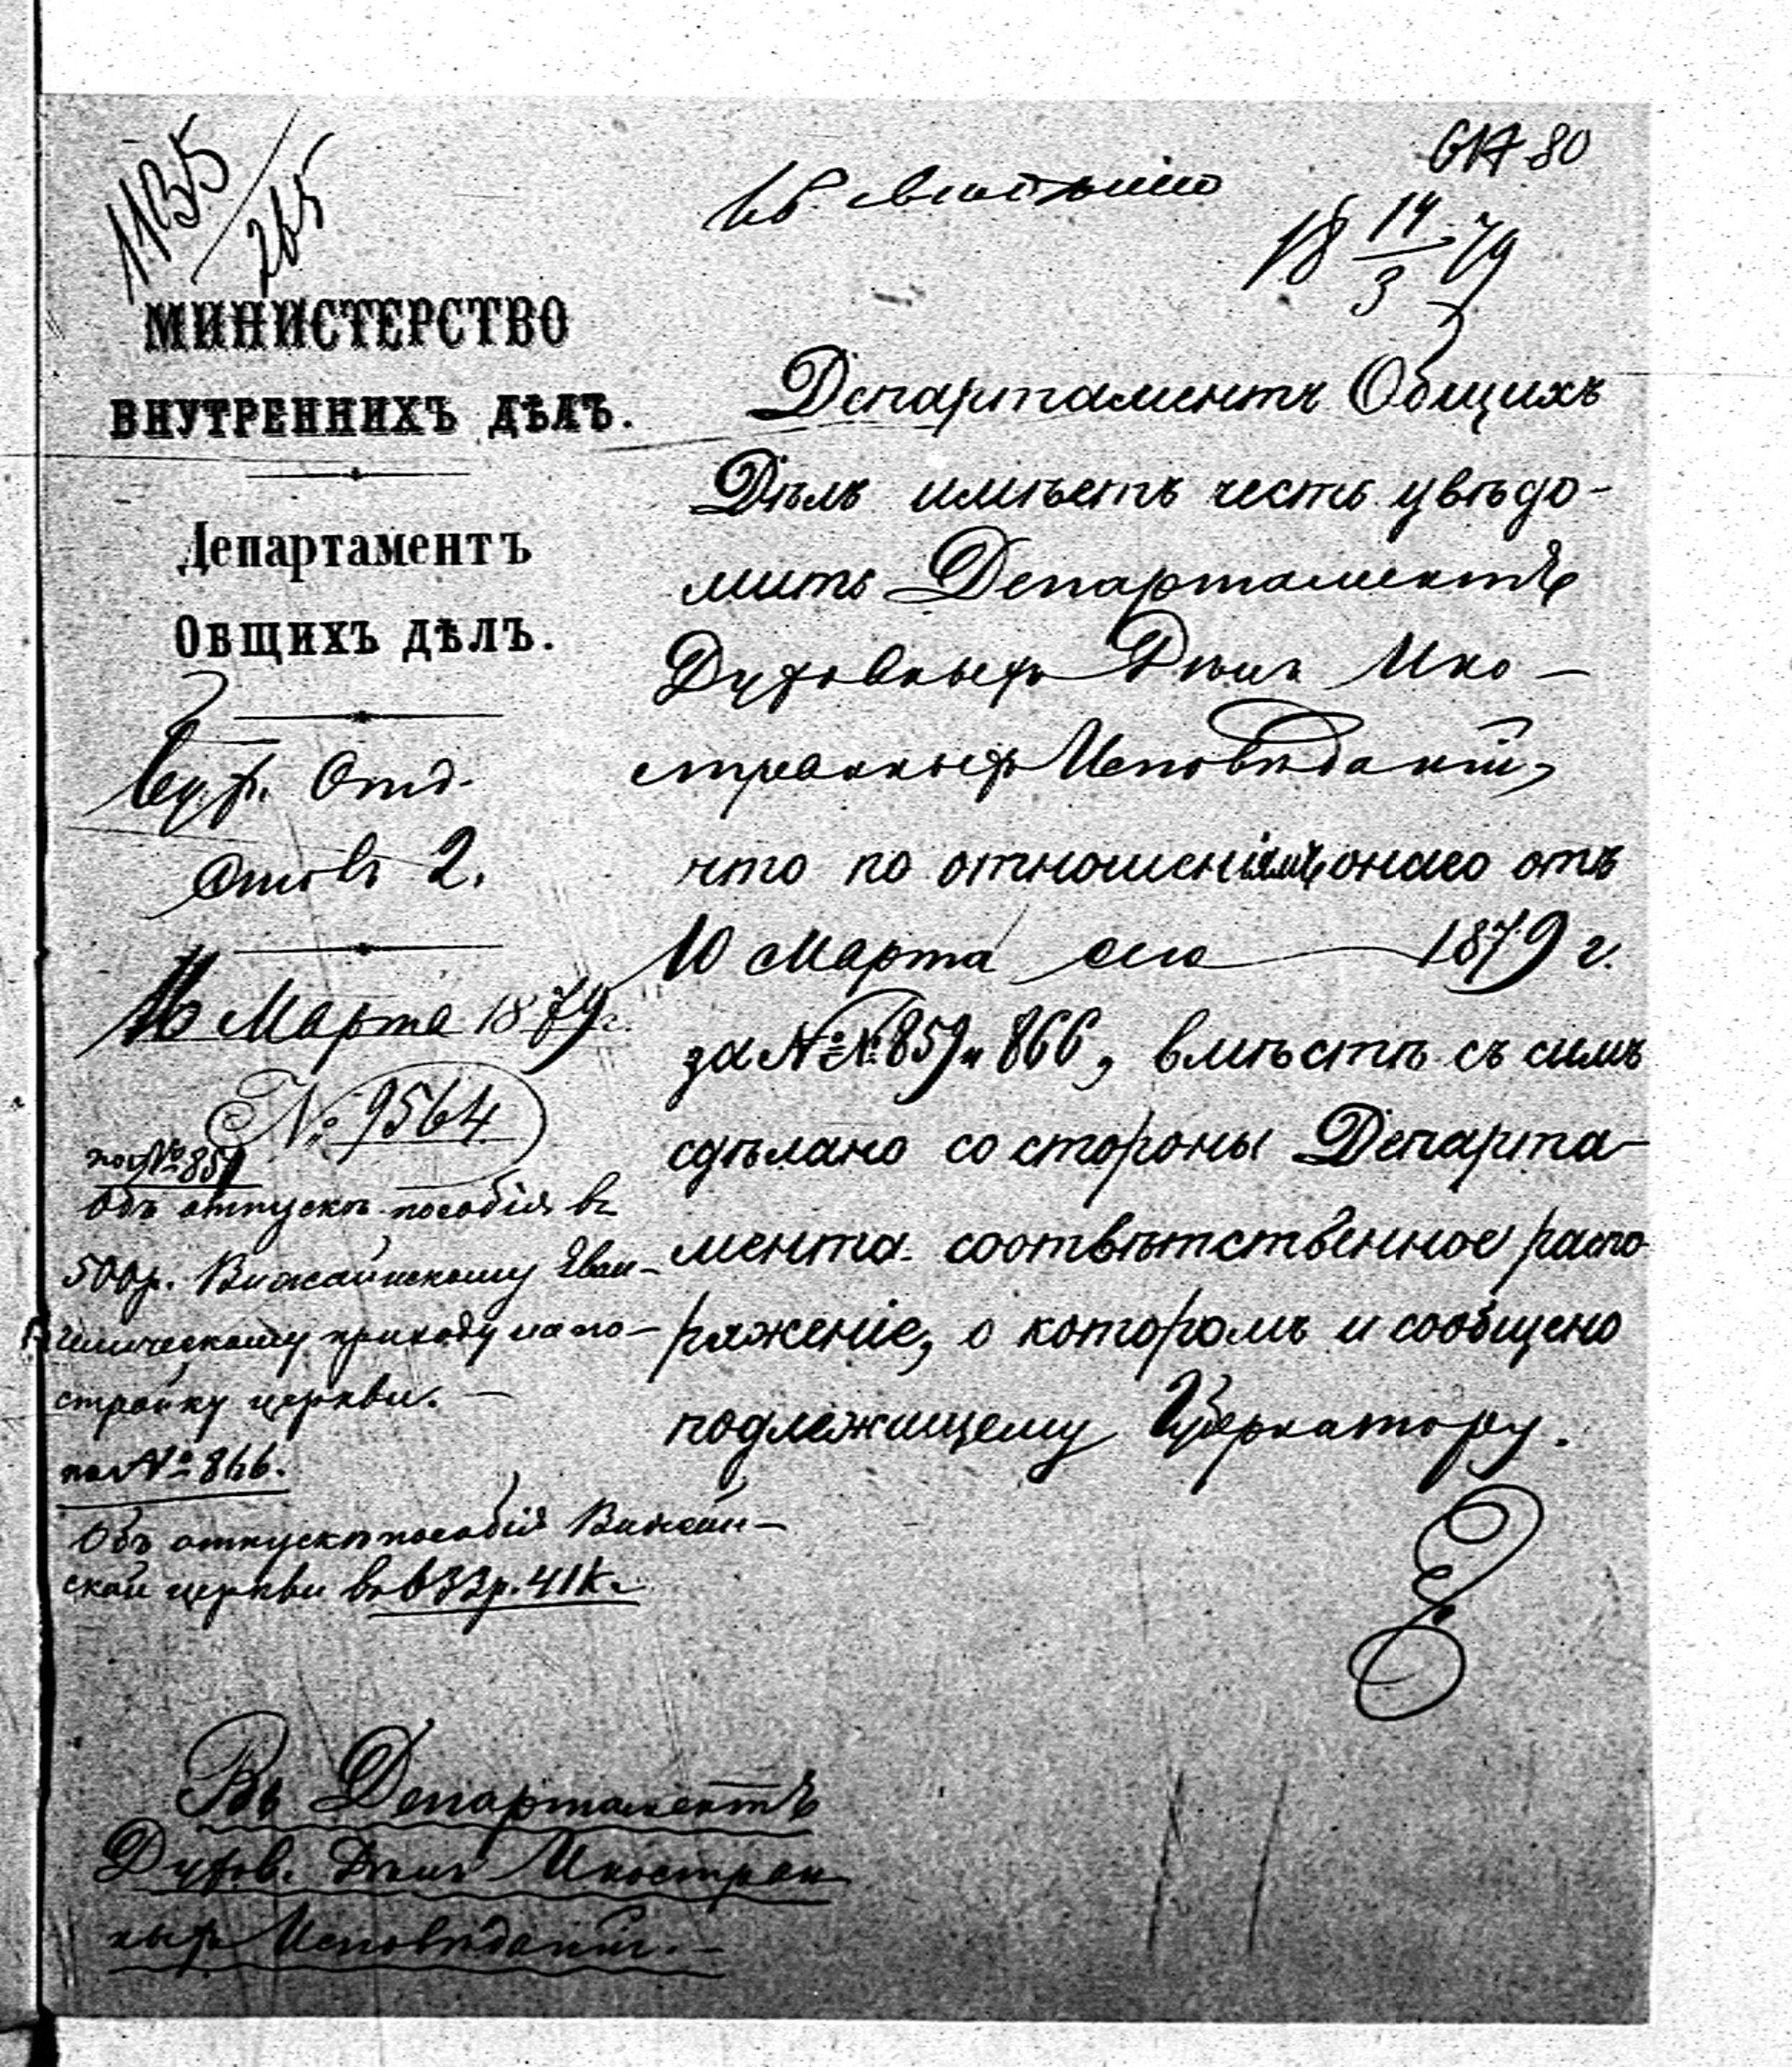 1135/265
80
къ свѣдѣнію
18 14/3 79
МИНИСТЕРСТВО
ВНУТРЕННИХЪ ДѢЛЪ.
Департаментъ
Общихъ дѣлъ.
Бух. Отд.
Столъ 2.
16 Марта 1879 г.
№ 9564
по № 859
Объ отпускѣ пособія въ
500 р. Вижайнскому Еван-
гелическому приходу на по-
стройку церкви. —
по № 866.
Объ отпускѣ пособія Вижайн-
ской церкви въ 633 р. 41 к.
Департаментъ Общихъ
Дѣлъ имѣетъ честь увѣдо-
мить Департаментъ
Духовныхъ Дѣлъ Ино-
странныхъ Исповѣданій,
что по отношеніямъ онаго отъ
10 Марта сего 1879 г.
за №№ 859 и 866, вмѣстѣ съ симъ
сдѣлано со стороны Департа-
мента соотвѣтственное распо-
ряженіе, о которомъ и сообщено
подлежащему Губернатору.
Въ Департаментъ
Духов. Дѣлъ Иностран
ныхъ Исповѣданій. —